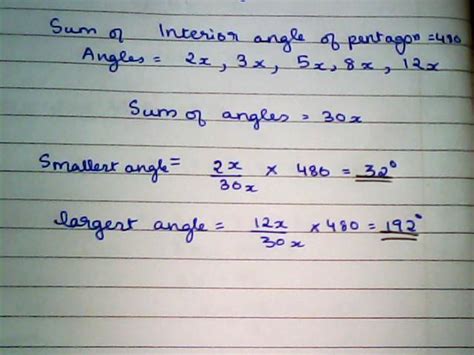 Sum of Interior angle of pentagon = 480
Angles = 2x , 3x , 5x , 8x , 12x
Sum of angles = 30x
Smallest angle = 2x/30x × 480 = 32°
largest angle = 12x/30x × 480 = 192°